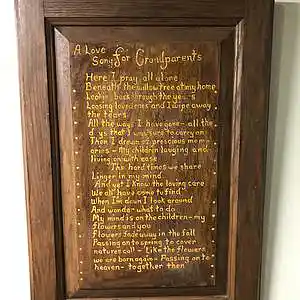 A Love
Song for Grandparents
Here I pray all alone
Beneath the willow tree at my home
Lookin back through the years
Loosing loved ones and I wipe away
the tears.
All the ways I have gone - all the
days that I was sure to carry on
Then I dream of precious mem-
ories - My children laughing and
living on with ease
The hard times we share
Linger in my mind
And yet I know the loving care
We all have come to find
When I'm down I look around
And wonder what to do
My mind is on the children - my
flowers and you
Flowers fade away in the fall
Passing on to spring to cover
natures call - Like the flowers
we are born again - Passing on to
heaven - together then